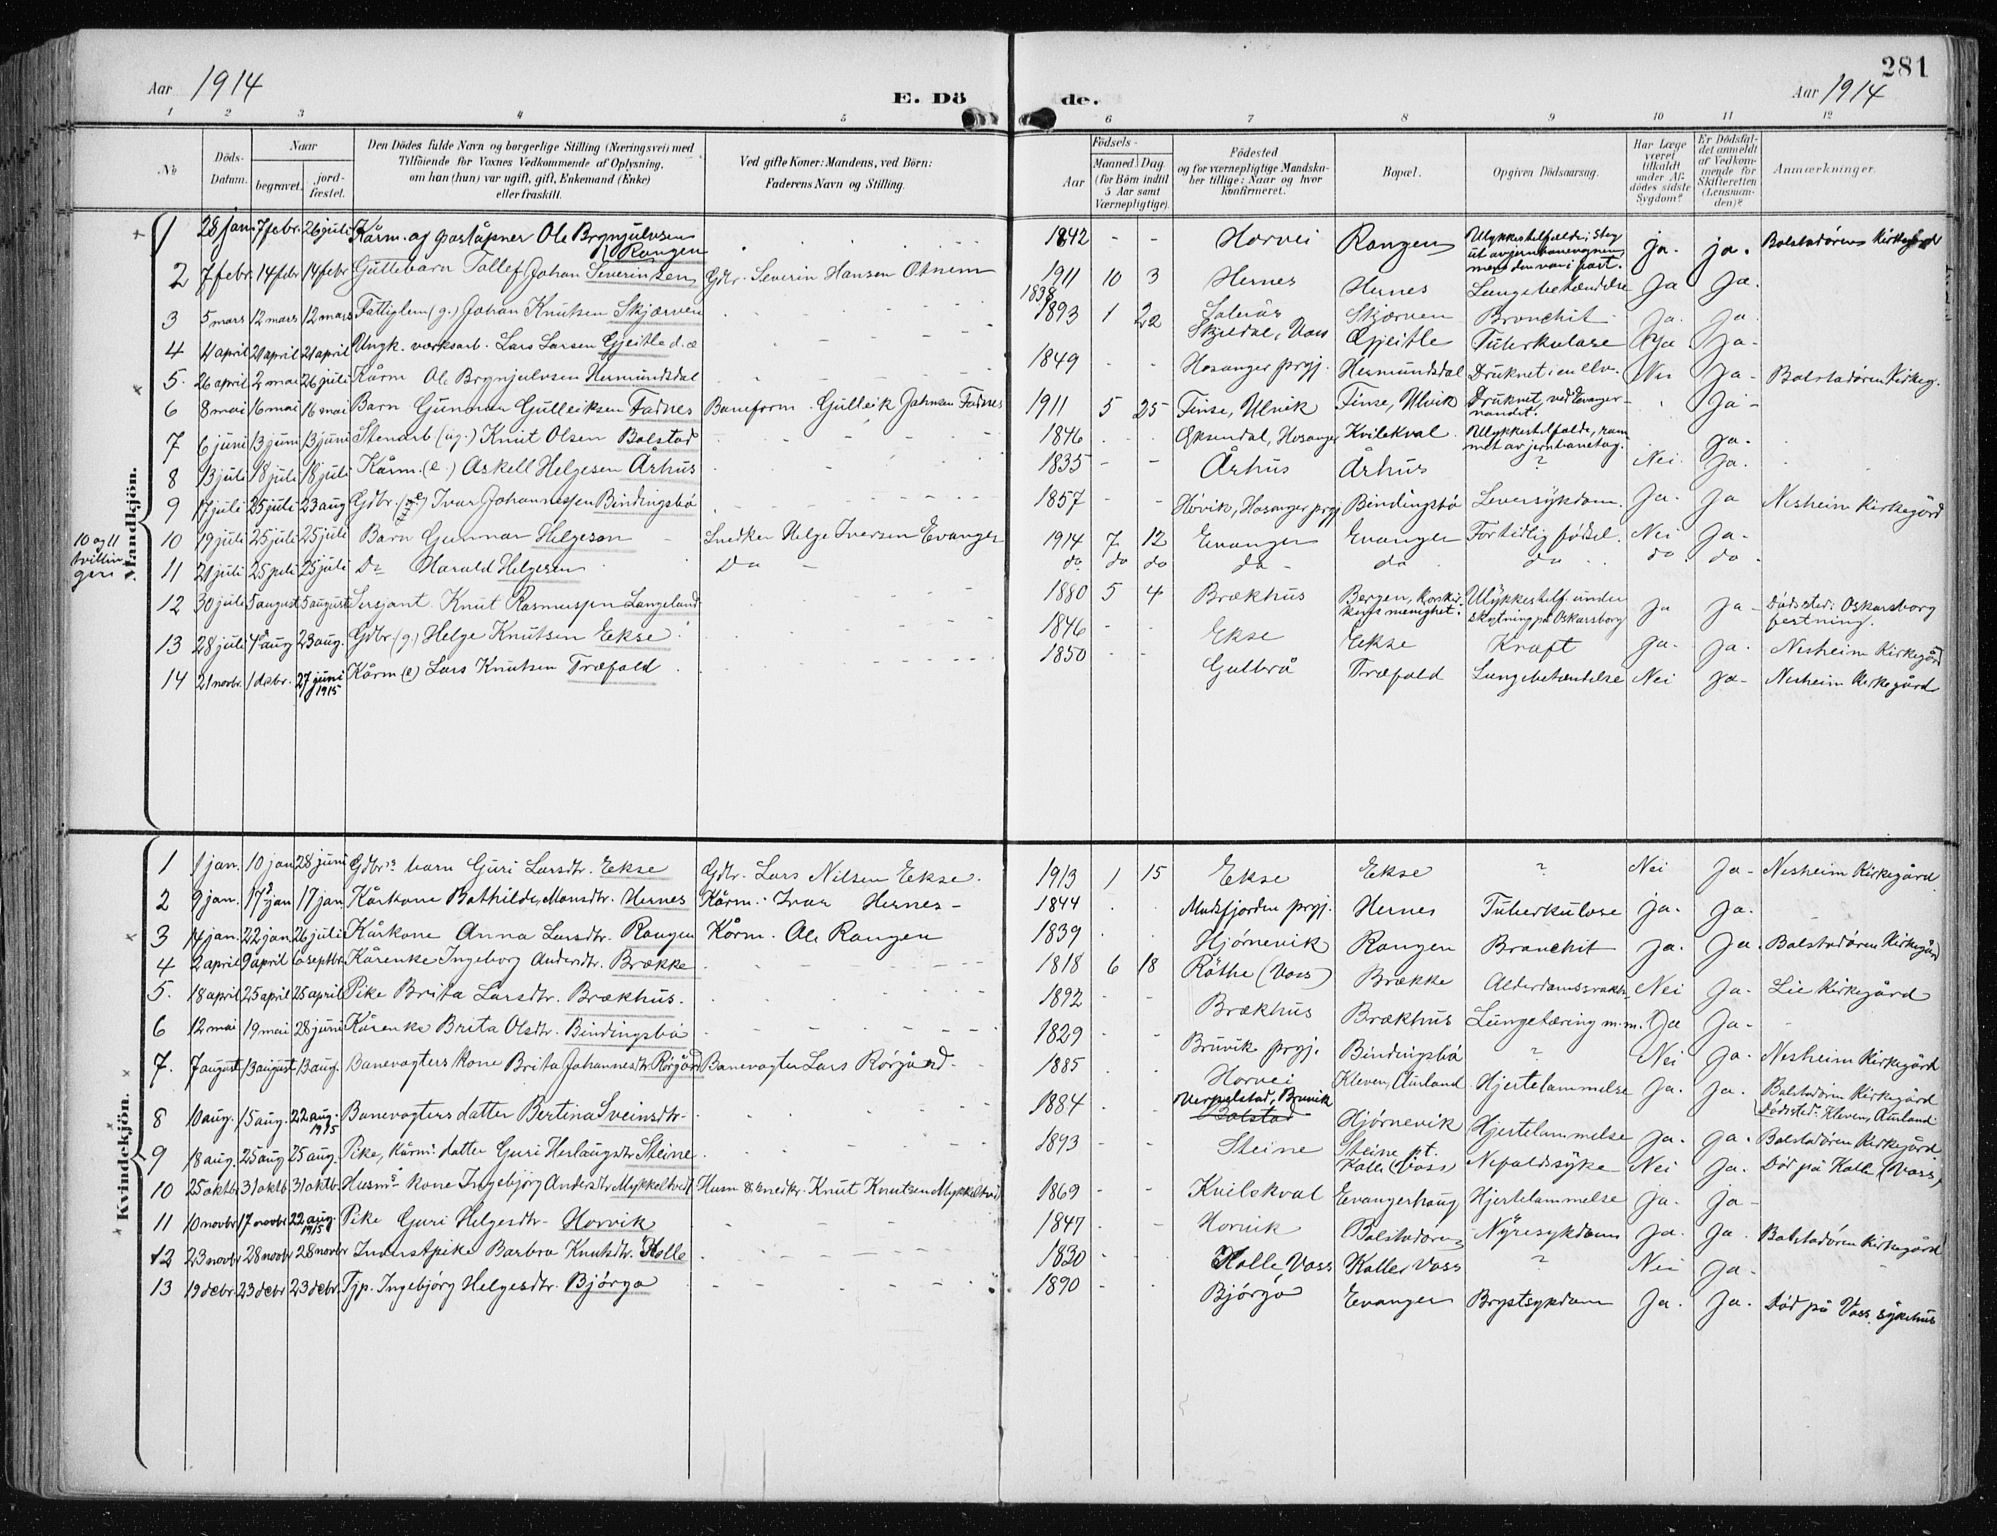 281
Aar 1914
E. Dö de.
Aar 1914
1 2 3 4 5 6 7 8 9 10 11 12
No
Döds-Datum.
Naar
begravet.
jord-fæstet.
Den Dödes fulde Navn og borgerlige Stilling (Næringsvei) med
Tilföiende for Voxnes Vedkommende af Oplysning,
om han (hun) var ugift, gift, Enkemand (Enke)
eller fraskilt.
Ved gifte Koner: Mandens, ved Börn:
Faderens Navn og Stilling.
Födsels-
Aar
Maaned Dag
(for Börn indtil
5 Aar samt
Værnepligtige).
Födested
og for værnepligtige Mandska-
ber tillige: Naar og hvor
konfirmeret.
Bopæl.
Opgiven Dödsaarsag.
Har Læge
været
tilkaldt
under Af-
dödes sidste
Sygdom?
Er Dödsfal-
det anmeldt
af Vedkom-
mende for
Skifteretten
(Lensman-
den)?
Anmærkninger.
Mandkjön.
10 og 11
tvillin
ger
1 28 jan. 7 febr. 26 juli Kårm. og poståpner Ole Brynjulvsen Rongen 1842 - - Horvei Rongen Ulykkestilfælde; steg ut av jernbanevognen mens den var i fart. ja. ja. Bolstadøren Kirkegård
2 7 febr. 14 febr 14 febr Guttebarn Tollef Johan Severinsen Gdbr. Severin Hansen Otnem 1911 10 3 Hernes Hernes Lungebetændelse Ja Ja.
3 5 mars 12 mars 12 mars Fattiglem (g.) Johan Knutsen Skjærven 1838 Skjærven Bronchit Ja. Ja.
4 11 april 21 april 21 april Ungk. værksarb. Lars Larsen Gjeitle d.æ 1893 1 22 Skjeldal, Voss Gjeitle Tuberkulose Ja Ja-
5 26 april 2 mai 26 juli Kårm Ole Brynjulvsen Hermundsdal 1849 - - Hosanger prgj. Hermundsdal Druknet i en elv. Nei Ja- Bolstadøren Kirkeg.
6 8 mai 16 mai 16 mai Barn Gunnar Gulleiksen Fadnes Baneform. Gulleik Johnsen Fadnes 1911 5 25 Finse, Ulvik Finse, Ulvik Druknet, ved Evanger-vandet. Ja-
7 6 juni 13 juni 13 juni Stenarb (ug.) Knut Olsen Bolstad 1846 Eksendal, Hosanger Kvilekval Ulykkestilfælde, rammet av jernbanetog. Ja.
8 13 juli 18 juli 18 juli Kårm. (e.) Askell Helgesen Århus 1835 - - Århus Århus ? Nei Ja.
9 17 juli 25 juli 23 aug Gdbr. Ivar Johannessen Bindingsbø 1857 - - Høvik, Hosanger prgj Bindingsbø Leversykdom. Ja. Ja Nesheim Kirkegård
10 19 juli 25 juli 25 juli Barn Gunnar Helgeson Snedker Helge Iversen Evanger 1914 7 12 Evanger Evanger Fortidlig fødsel. Nei Ja-
11 21 juli 25 juli 25 juli Do Harald Helgesen Do - do do do do do do do do
12 30 juli 5 august 5 august Sersjant. Knut Rasmussen Langeland 1880 5 4 Brækhus Bergen, Korskirkens menighet. Ulykkestilf. under skytning på Oskarsborg Ja Ja- Dødssted: Oskarsborg festning.
13 28 juli 4 aug 23 aug. Gdbr (g.) Helge Knutsen Ekse 1846 - - Ekse Ekse Kræft Ja. Ja. Nesheim Kirkegård
14 21 novbr. 1 debr. 27 juni 1915 Kårm (e) Lars Knutsen Træfald 1850 - - Gulbrå Træfald Lungebetændelse Nei Ja- Nesheim Kirkegård
Kvindekjön.
1 1 jan. 10 jan 28 juni Gdbr's barn Guri Larsdtr. Ekse Gdbr. Lars Nilsen Ekse. 1913 1 15 Ekse Ekse ? Nei Ja- Nesheim Kirkegård
2 9 jan. 17 jan 17 jan Kårkone Bothilde Monsdtr. Hernes Kårm. Ivar Hernes - 1844 Modfjorden prgj. Hernes Tuberkulose Ja. Ja.
3 14 jan. 22 jan 26 juli Kårkone Anna Larsdtr. Rongen Kårm. Ole Rongen 1839 Hjørnevik Rongen Bronchit Ja. Ja. Bolstadøren Kirkegård
4 2 april 9 april 6 septbr. Kårenke Ingeborg Andersdtr. Brække 1818 6 18 Røthe (Voss) Brække Alderdomssvakh. Nei Ja. Lie Kirkegård
5. 18 april 25 april 25 april Pike Brita Larsdtr. Brækhus. 1892 - - Brækhus Brækhus Lungetæring m.m. Ja Ja-
6 12 mai 19 mai 28 juni Kårenke Brita Olsdtr. Bindingsbø 1829 - - Bruvik prgj. Bindingsbø ? Nei Ja. Nesheim Kirkegård
7. 7 august 13 august 13 aug. Banevogters kone Brita Johannesdtr Rørgård Banevogter Lars Rørgård - 1885 Horvei Kleven, Aurland. Hjertelammelse Ja. Ja. Bolstadøren Kirkegård (Dødssted: Kleven, Aurland
8 10 aug. 15 aug. 22 aug. 1915 Banevogters datter Bertina Sveinsdtr- 1884 Verpelstad, Bruvik Bolstad Hjørnevik Hjertelammelse Ja. Ja. Bolstadøren Kirkegård
9 18 aug. 25 aug 25 aug. Pike, Kårm. datter Guri Herlaugsdtr Steine 1893 - - Steine Steine pt. Kolle (Voss) Nefaldssyke Nei Ja. Død på Kolle (Voss)
10 25 oktb. 31 oktb. 31 oktb. Husm's kone Ingebjørg Andersdtr Mykkeltvedt Husm & snedkr. Knut Knutsen Mykkeltvedt 1869 - - Kvilekval Evangerhaug Hjertelammelse Ja. Ja-
11 10 novbr 17 novbr 22 aug. 1915 Pike Guri Helgesdtr- Horvik 1847 - - Horvik Bolstadøren Nyresykdom Ja. Ja. Bolstadøren Kirkegård
12 23 novbr 28 novbr 28 novbr Inderstpike Barbro Knutsdtr. Kolle 1830 Kolle Voss Kolle Voss ? Nei Ja-
13 19 debr. 23 debr 23 debr. Tjp. Ingebjørg Helgesdtr. Bjørgo 1890 Bjørgo Evanger Brystsykdom Ja. Ja. Død på Voss sykehus